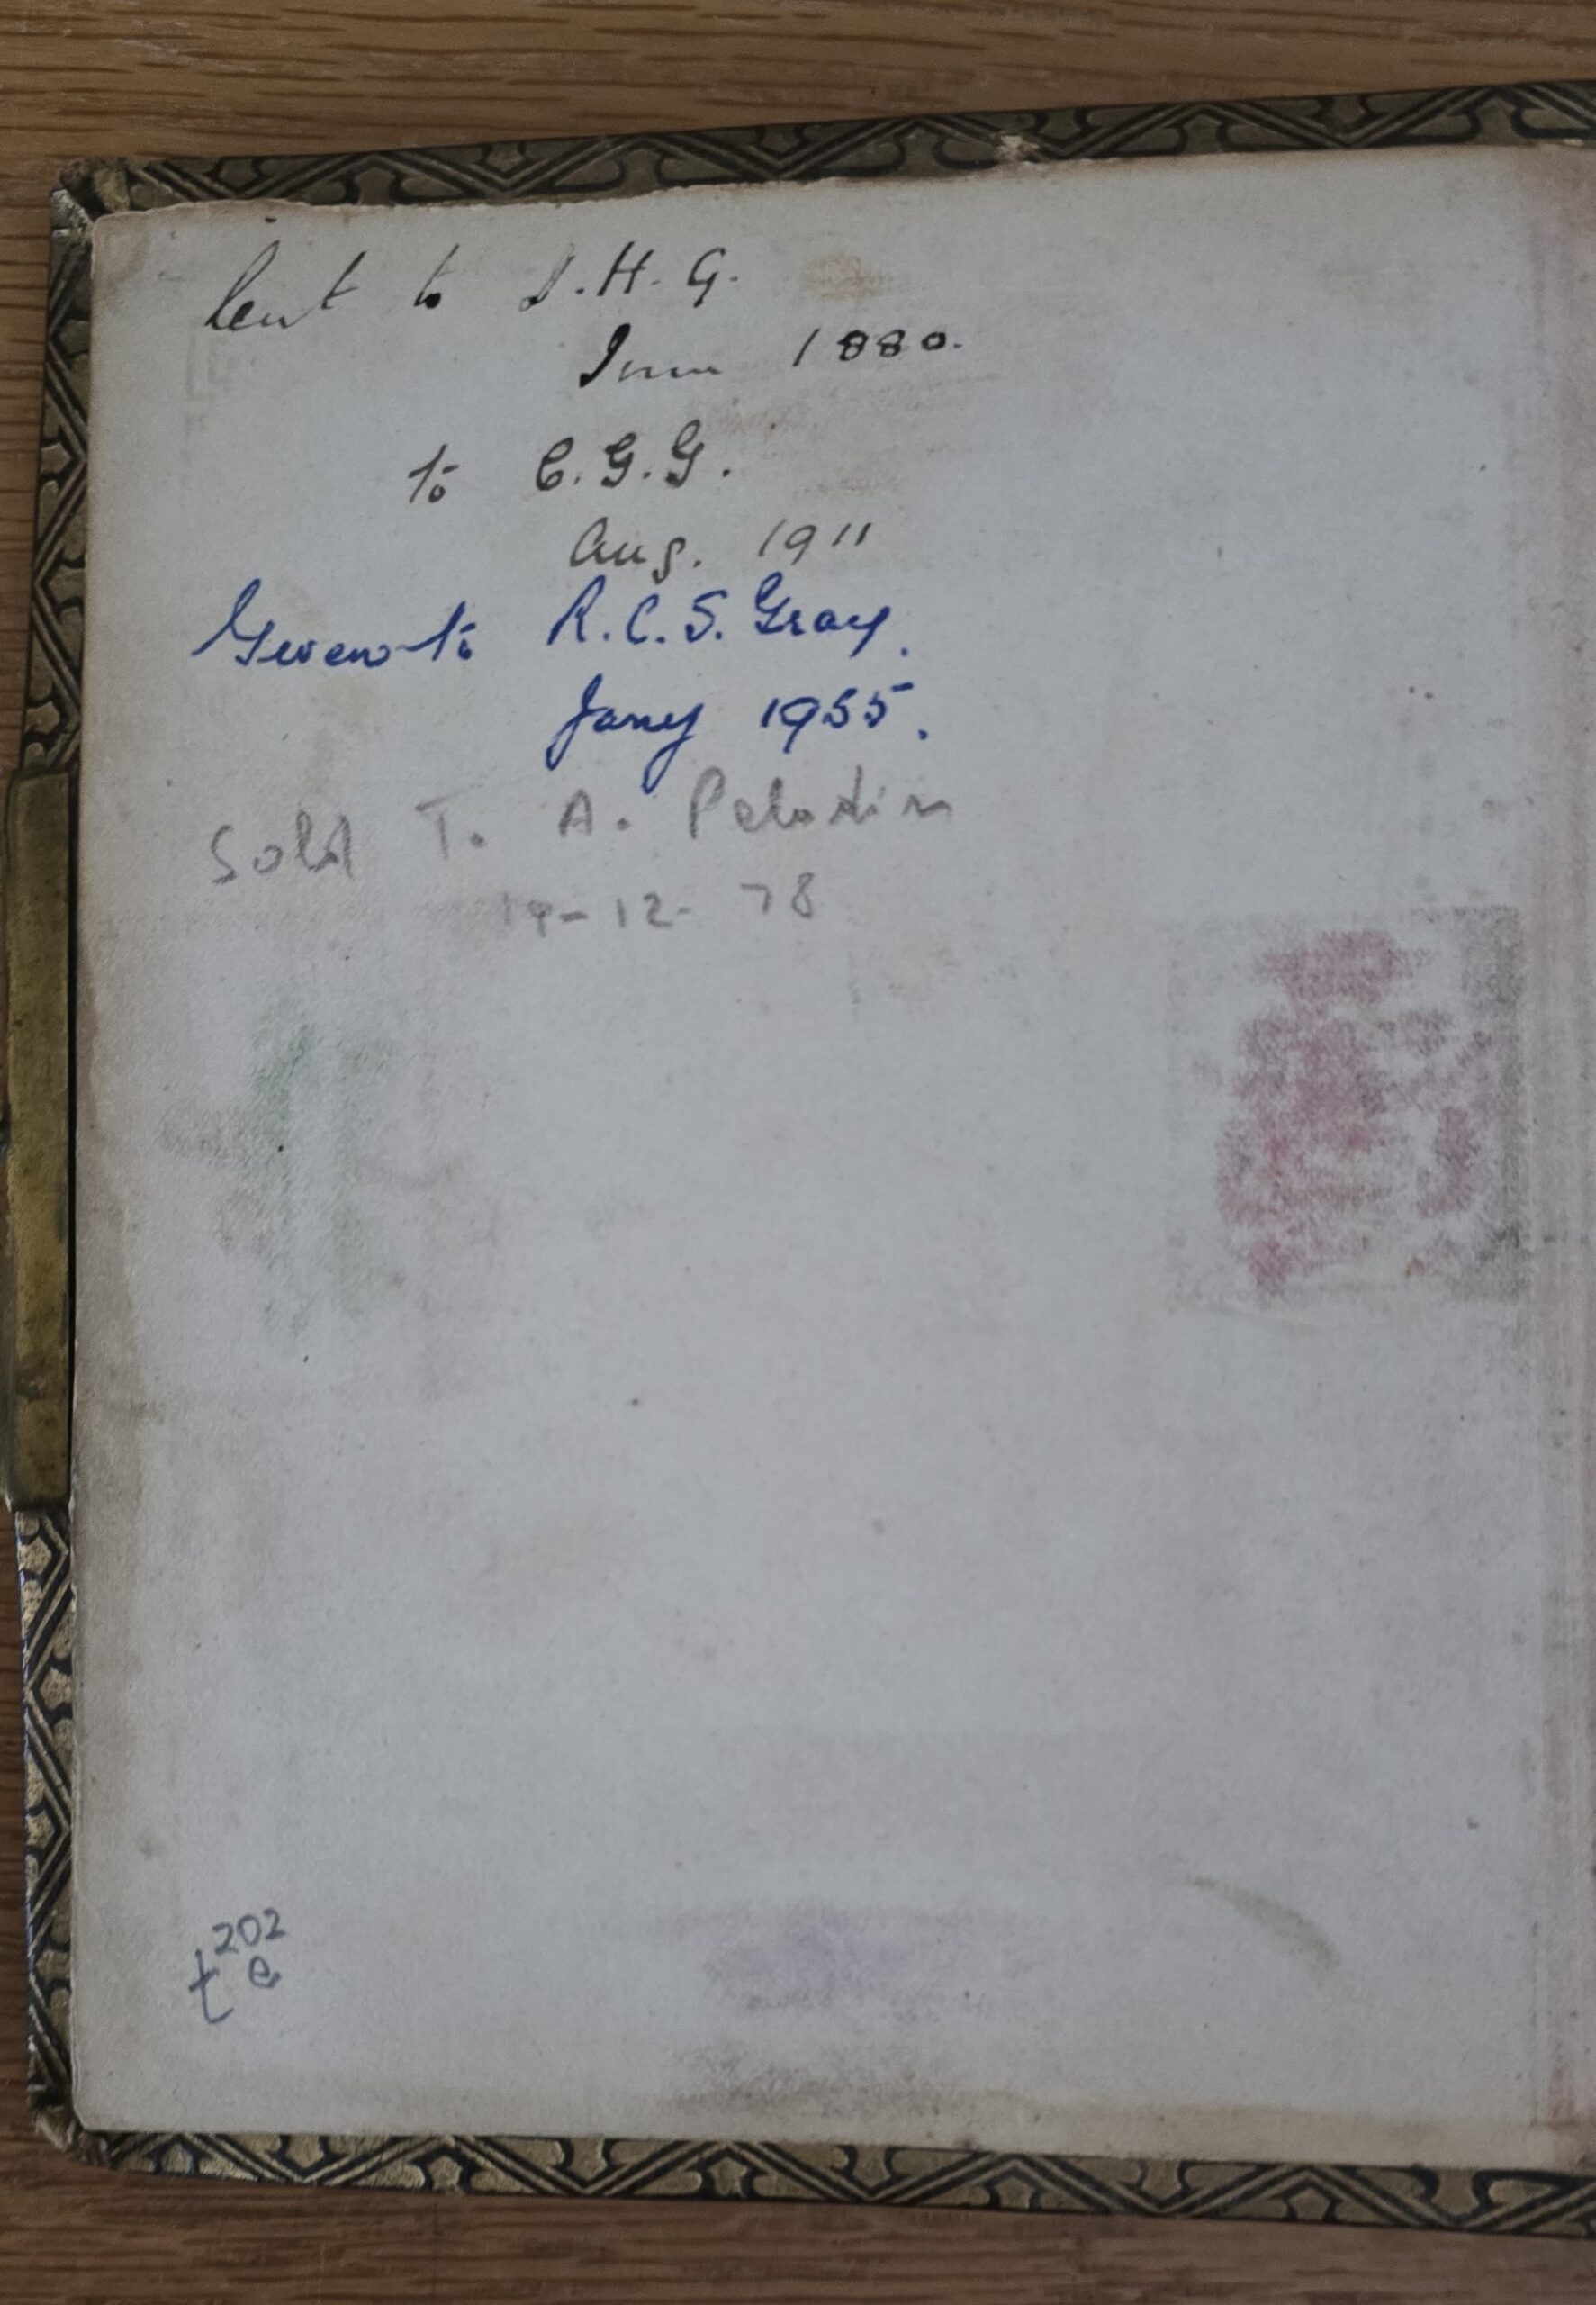 Lent to J.H.G.
June 1880.
to C.G.G.
Aug. 1911
Given to R.C.S. Gray.
Jany 1955.
Sold T. A.
-12-78
202
te